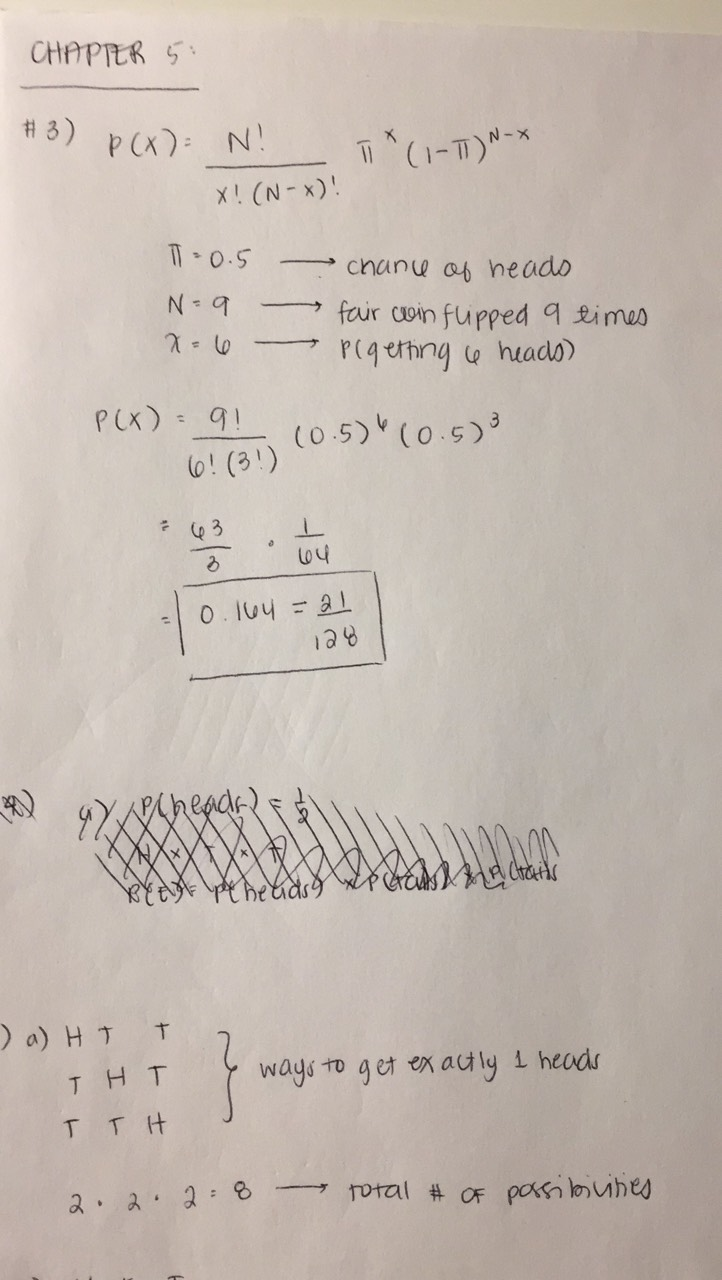 CHAPTER 5:
#3) P(X) = N! / x! (N-x)! π^x (1-π)^N-x
π = 0.5 → chance of heads
N = 9 → fair coin flipped 9 times
x = 6 → P(getting 6 heads)
P(X) = 9! / 6! (3!) (0.5)^6 (0.5)^3
= 63/3 · 1/64
= 0.164 = 21/128
4) P(heads) = 1/2
H x T x T
= P(heads) x P(tails) x P(tails
) a) H T T
T H T
T T H
} ways to get exactly 1 heads
2 · 2 · 2 = 8 → total # of possibilities